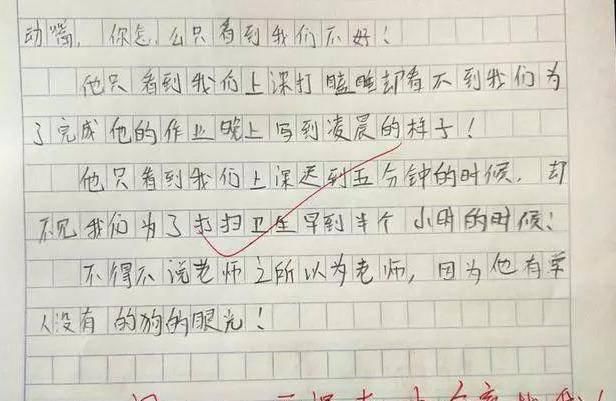 动嘴,你怎么只看到我们不好!
他只看到我们上课打瞌睡却看不到我们为
了完成他的作业晚上写到凌晨的样子!
他只看到我们上课迟到五分钟的时候,却
不见我们为了打扫卫生早到半个小时的时候!
不得不说老师之所以为老师,因为他有常
人没有的狗的眼光!